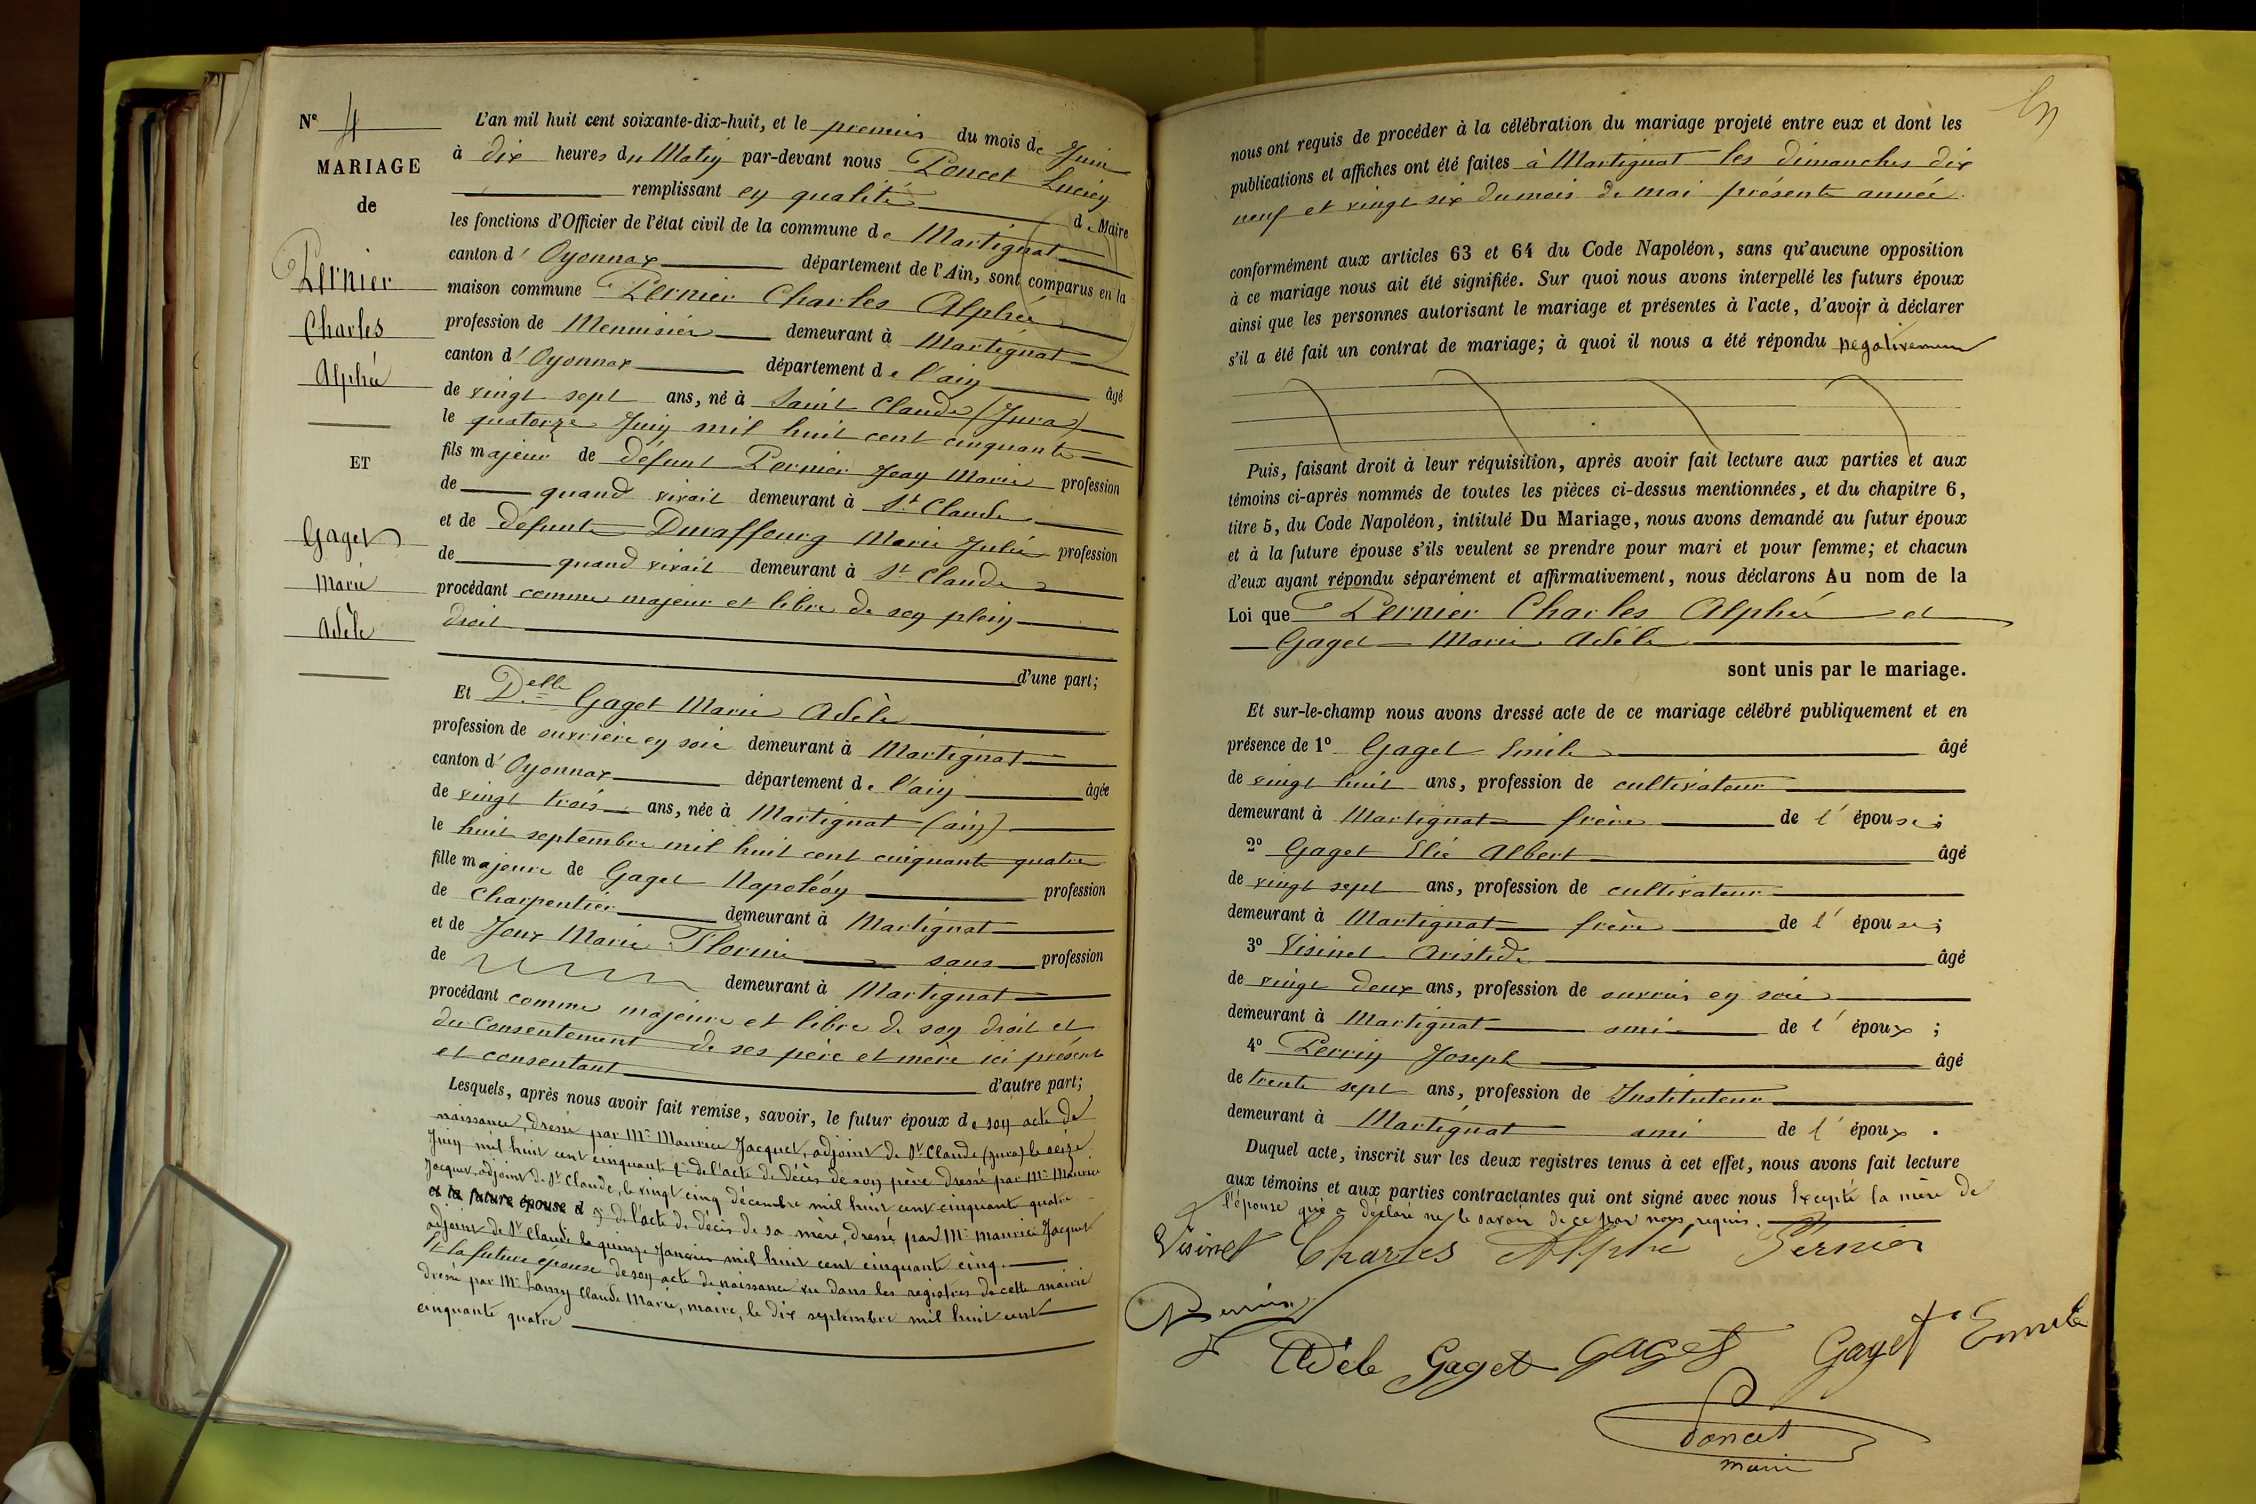 Nº 4
MARIAGE
de
Pernier
Charles
Alphée
ET
Gaget
Marie
Adèle
L'an mil huit cent soixante-dix-huit, et le premier du mois de Juin
à dix heures du Matin par-devant nous Poncet Lucien
remplissant en qualité de Maire
les fonctions d'Officier de l'état civil de la commune de Martignat
canton d' Oyonnax département de l'Ain, sont comparus en la
maison commune Pernier Charles Alphée
profession de Menuisier demeurant à Martignat
canton d' Oyonnax département de l'ain âgé
de vingt sept ans, né à Saint Claude (Jura)
le quatorze Juin mil huit cent cinquante
fils majeur de défunt Pernier Jean Marie profession
de quand vivait demeurant à St Claude
et de défunte Duraffourg Marie Julie profession
de quand vivait demeurant à St Claude
procédant comme majeur et libre de son plein
droit
d'une part;
Et Delle Gaget Marie Adèle
profession de ouvrière en soie demeurant à Martignat
canton d' Oyonnax département de l'ain âgée
de vingt trois ans, née à Martignat (ain)
le huit septembre mil huit cent cinquante quatre
fille majeure de Gaget Napoléon profession
de Charpentier demeurant à Martignat
et de Joux Marie Florine sans profession
de demeurant à Martignat
procédant comme majeure et libre de son droit et
du Consentement de ses père et mère ici présents
et consentant d'autre part;
Lesquels, après nous avoir fait remise, savoir, le futur époux de son acte de
naissance, dressé par Mr Maurice Jacquet, adjoint de St Claude (Jura) le seize
Juin mil huit cent cinquante de l'acte de décès de son père dressé par Mr Maurice
Jacquet, adjoint de St Claude, le vingt cinq décembre mil huit cent cinquante quatre
et la future épouse d de l'acte de décès de sa mère, dressé par Mr Maurice Jacquet
adjoint de St Claude le quinze Janvier mil huit cent cinquante cinq.
Et la future épouse de son acte de naissance vu dans les registres de cette mairie
dressé par Mr Lamy Claude Marie, maire, le dix septembre mil huit cent
cinquante quatre
nous ont requis de procéder à la célébration du mariage projeté entre eux et dont les
publications et affiches ont été faites à Martignat les dimanches dix
neuf et vingt six du mois de mai présente année.
conformément aux articles 63 et 64 du Code Napoléon, sans qu'aucune opposition
à ce mariage nous ait été signifiée. Sur quoi nous avons interpellé les futurs époux
ainsi que les personnes autorisant le mariage et présentes à l'acte, d'avoir à déclarer
s'il a été fait un contrat de mariage; à quoi il nous a été répondu négativement
Puis, faisant droit à leur réquisition, après avoir fait lecture aux parties et aux
témoins ci-après nommés de toutes les pièces ci-dessus mentionnées, et du chapitre 6,
titre 5, du Code Napoléon, intitulé Du Mariage, nous avons demandé au futur époux
et à la future épouse s'ils veulent se prendre pour mari et pour femme; et chacun
d'eux ayant répondu séparément et affirmativement, nous déclarons Au nom de la
Loi que Pernier Charles Alphée et
Gaget Marie Adèle
sont unis par le mariage.
Et sur-le-champ nous avons dressé acte de ce mariage célébré publiquement et en
présence de 1º Gaget Emile âgé
de vingt huit ans, profession de cultivateur
demeurant à Martignat frère de l' épouse;
2º Gaget Elie Albert âgé
de vingt sept ans, profession de cultivateur
demeurant à Martignat frère de l' épouse;
3º Visinet Aristide âgé
de vingt deux ans, profession de ouvrier en soie
demeurant à Martignat ami de l' époux ;
4º Perrin Joseph âgé
de trente sept ans, profession de Instituteur
demeurant à Martignat ami de l' époux .
Duquel acte, inscrit sur les deux registres tenus à cet effet, nous avons fait lecture
aux témoins et aux parties contractantes qui ont signé avec nous Excepté la mère de
l'épouse qui a déclaré ne le savoir de ce par nous requis.
Visinet Charles Alphé Pernier
Perrin
Adèle Gaget Gaget Gaget Emile
Poncet
maire